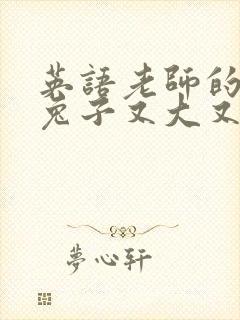 英語老師的
兔子又大又
夢心軒